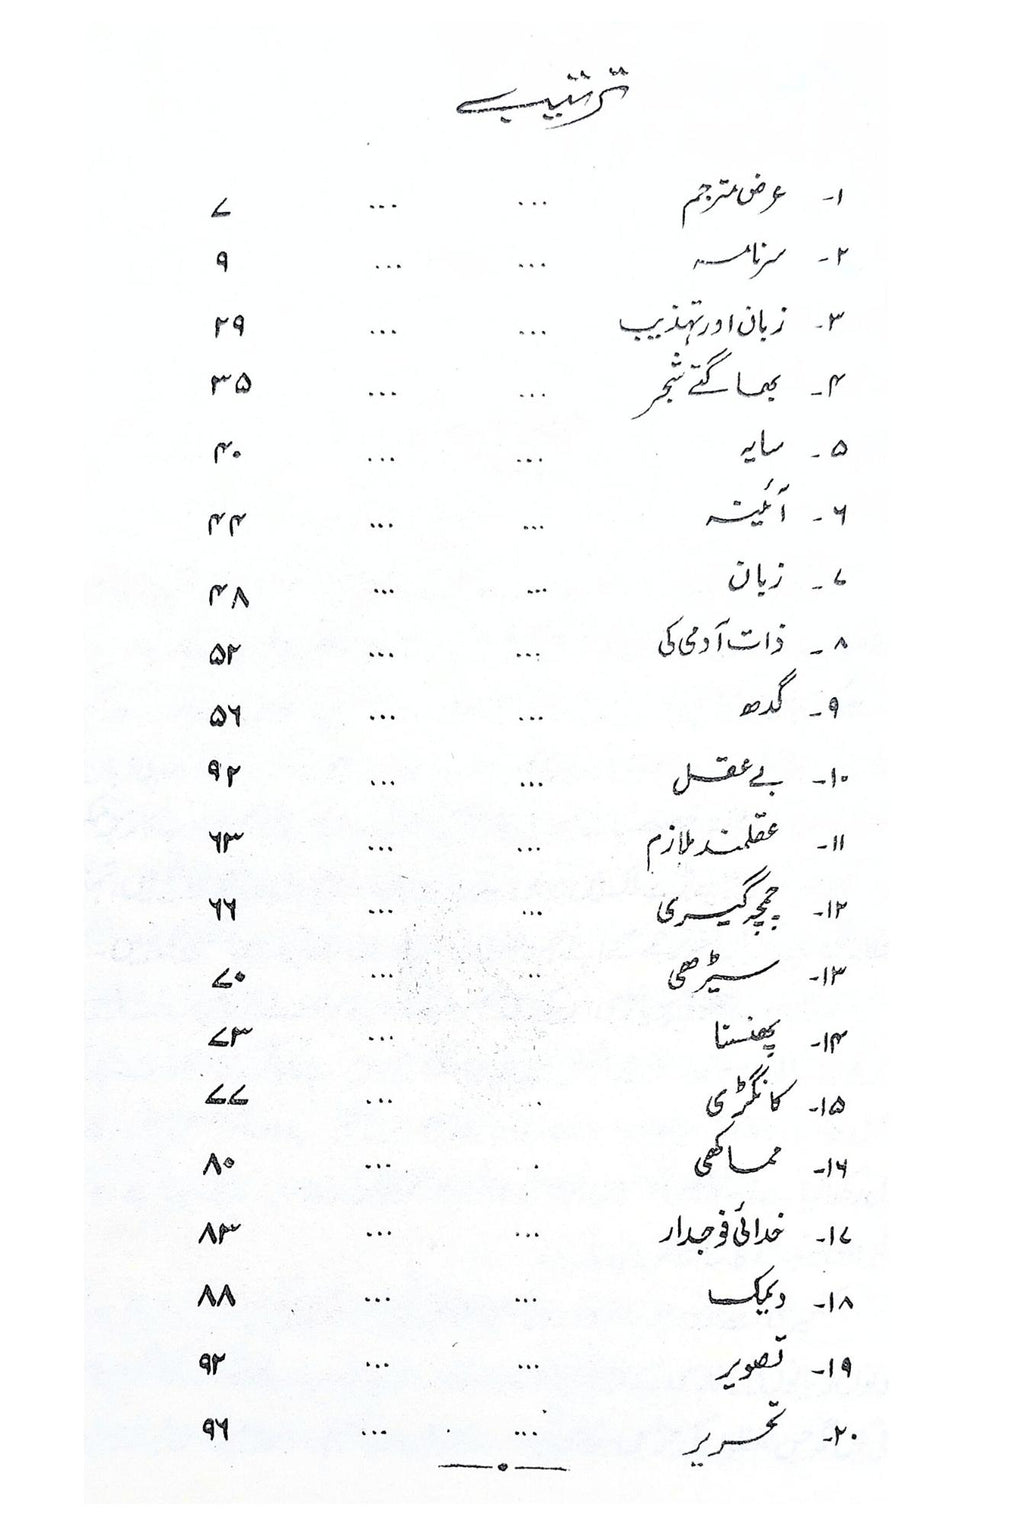 ترتیب
۱۔ عرض مترجم ... ... ۷
۲۔ سرنامہ ... ... ۹
۳۔ زبان اور تہذیب ... ... ۲۹
۴۔ بھاگتے شجر ... ... ۳۵
۵۔ سایہ ... ... ۴۰
۶۔ آئینہ ... ... ۴۴
۷۔ زیان ... ... ۴۸
۸۔ ذات آدمی کی ... ... ۵۲
۹۔ گدھ ... ... ۵۶
۱۰۔ بے عقل ... ... ۹۲
۱۱۔ عقلمند ملازم ... ... ۶۳
۱۲۔ چمچہ گیری ... ... ۶۶
۱۳۔ سیڑھی ... ... ۷۰
۱۴۔ پھنسنا ... ۷۳
۱۵۔ کانگڑی ... ... ۷۷
۱۶۔ مماکھی ... ۸۰
۱۷۔ خدائی فوجدار ... ... ۸۳
۱۸۔ دیمک ... ... ۸۸
۱۹۔ تصویر ... ... ۹۲
۲۰۔ تحریر ... ... ۹۶